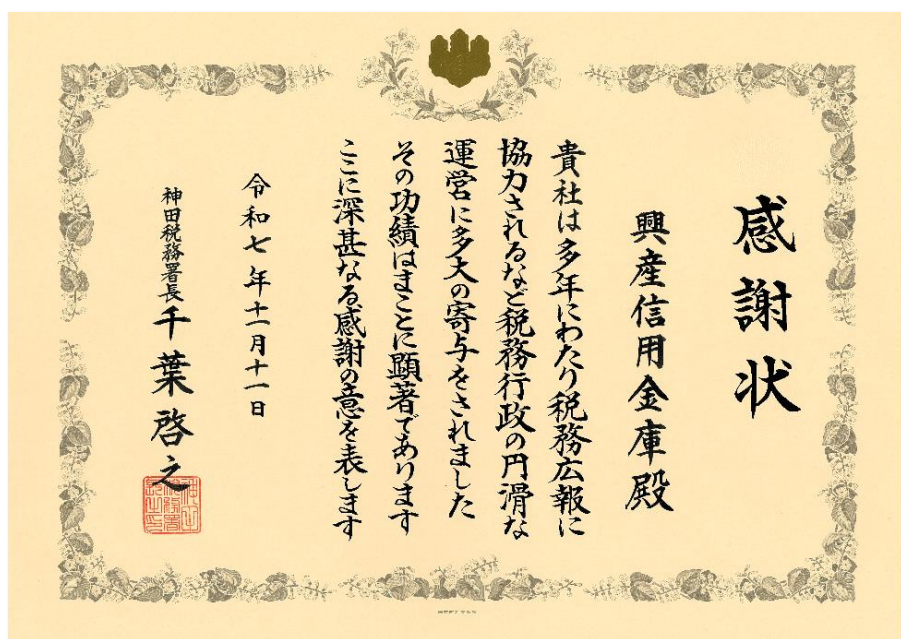 感謝状
興産信用金庫殿
貴社は多年にわたり税務広報に
協力されるなど税務行政の円滑な
運営に多大の寄与をされました
その功績はまことに顕著であります
ここに深甚なる感謝の意を表します
令和七年十一月十一日
神田税務署長 千葉啓之